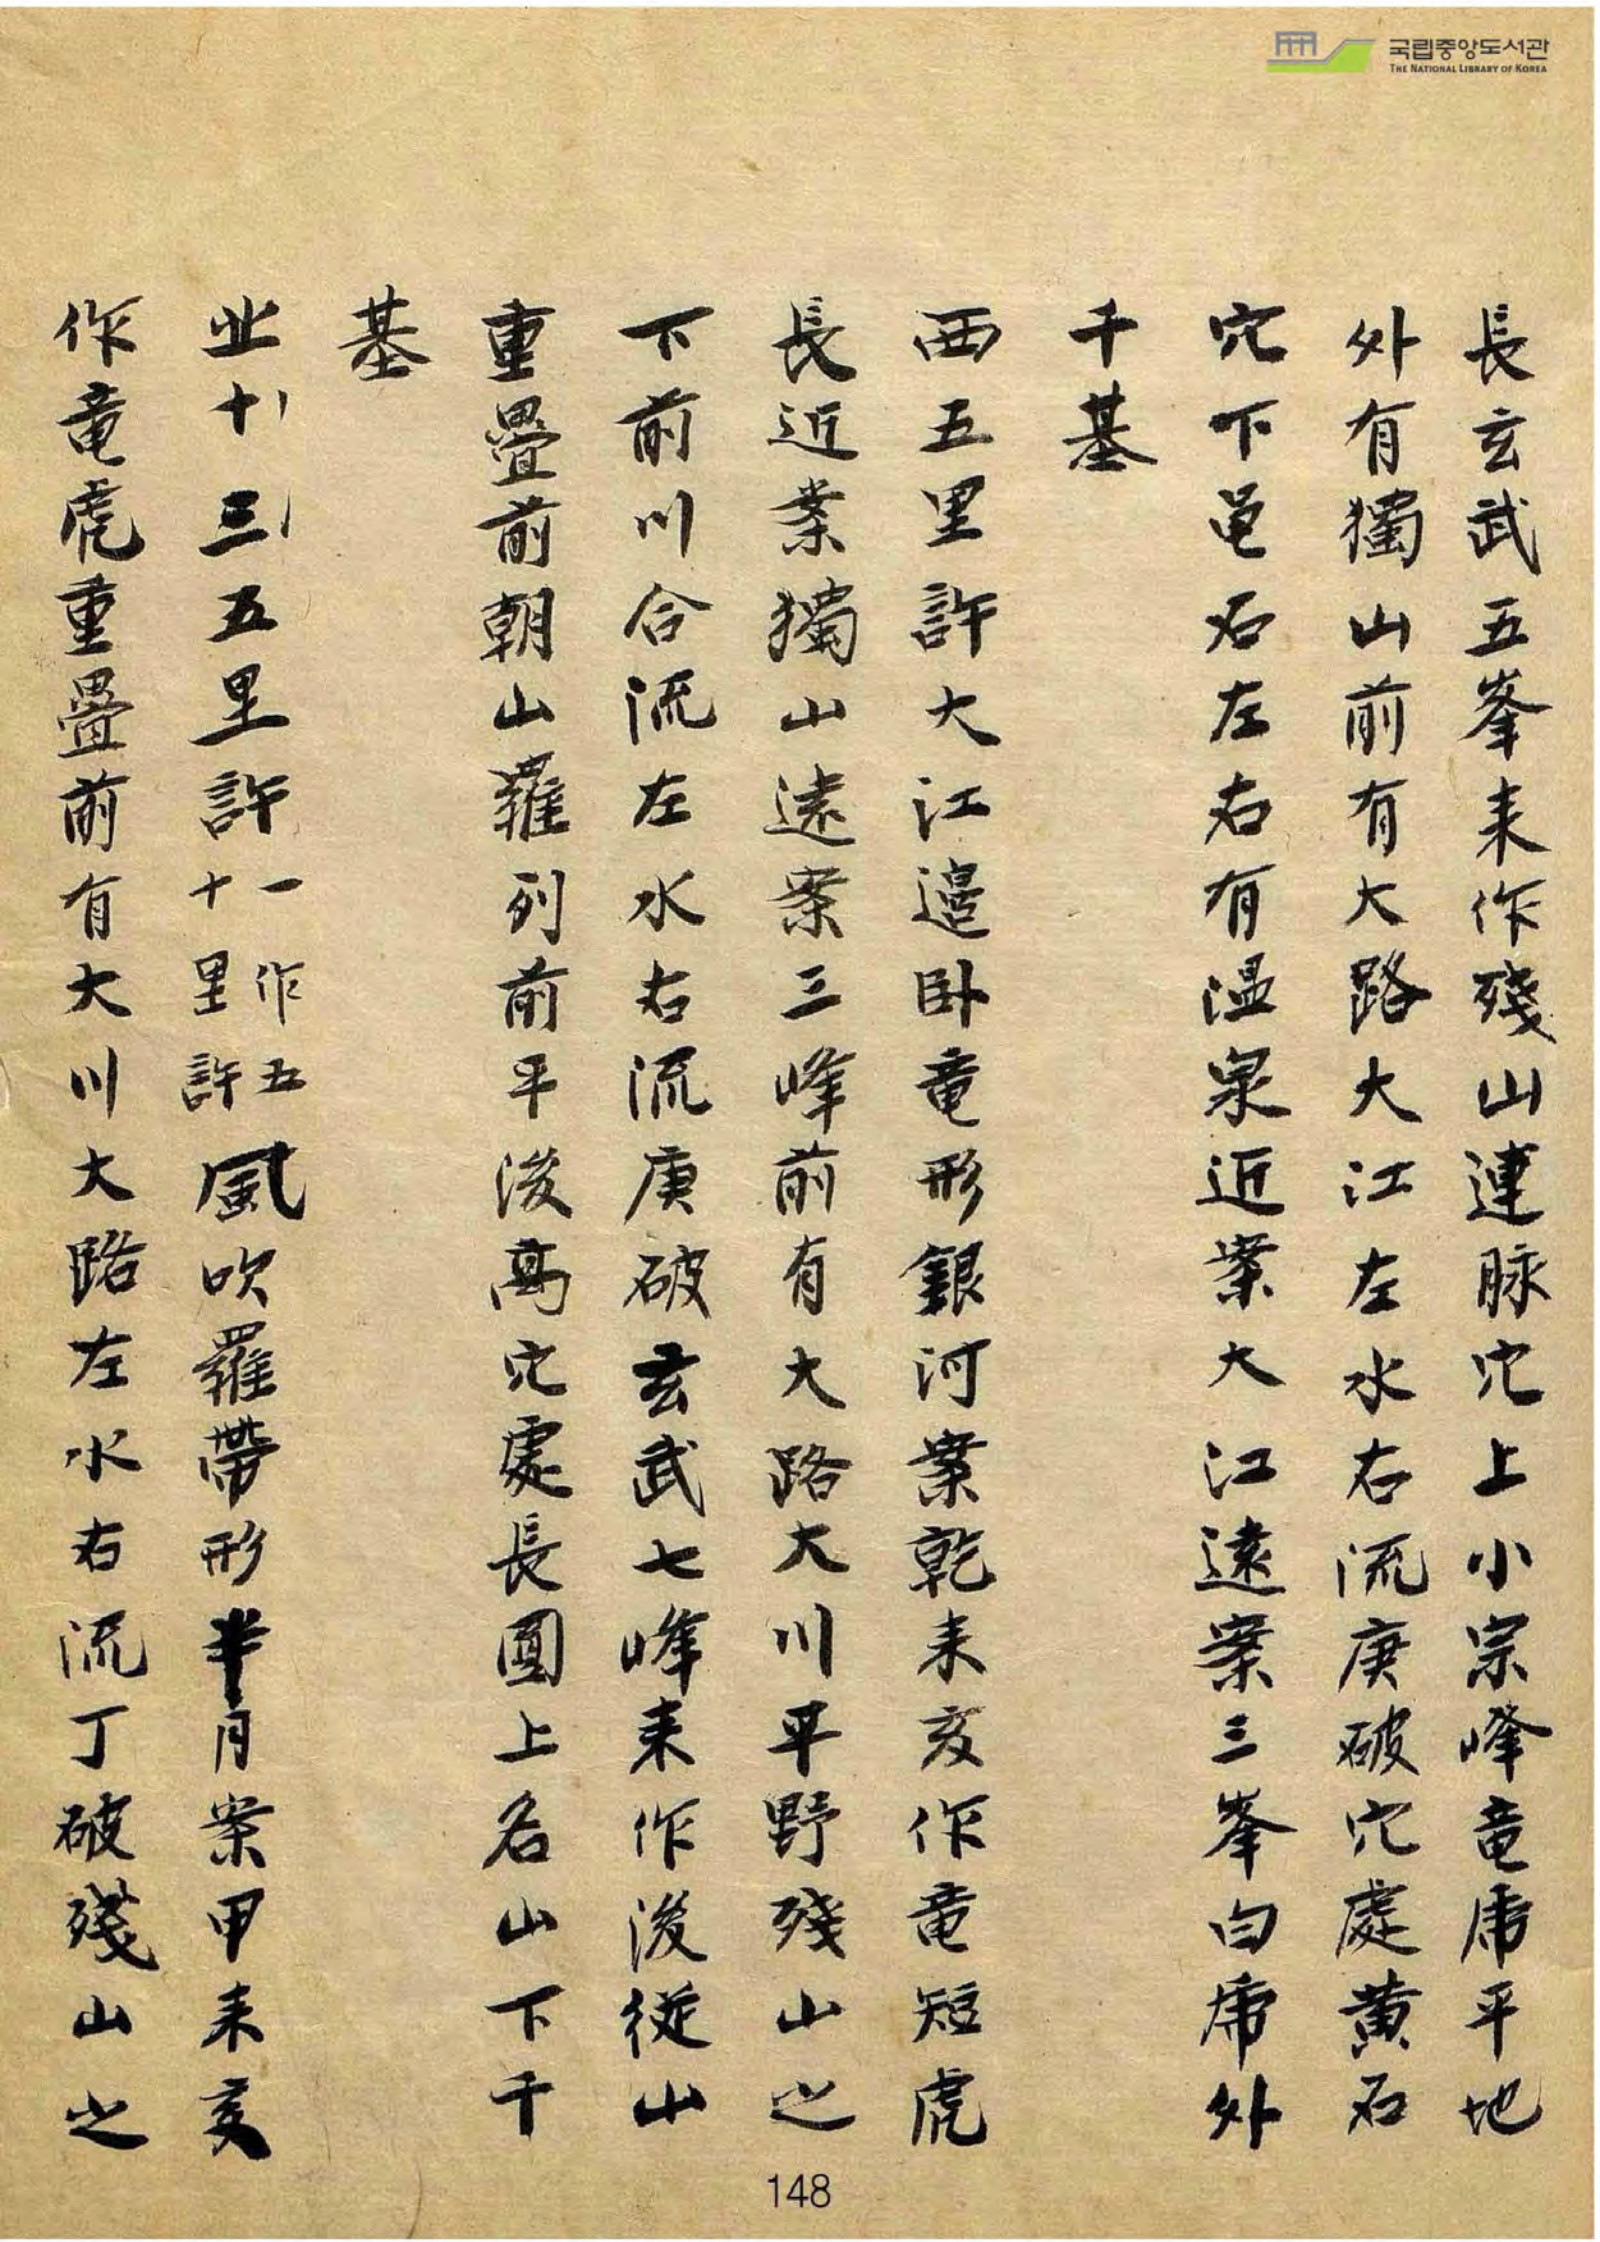 국립중앙도서관
THE NATIONAL LIBRARY OF KOREA
長玄武五峯耒作殘山連脉穴上小宗峰竜虎平地
外有獨山前有大路大江左水右流庚破穴處黃石
穴下黾石左右有温泉近案大江遠案三峯白虎外
千基
西五里許大江邉卧竜形銀河案乾耒亥作竜短虎
長近案獨山遠案三峰前有大路大川平野殘山之
下前川合流左水右流庚破玄武七峰耒作後從山
重疊前朝山羅列前平後髙穴處長圓上名山下千
基
北十三五里許一作五十里許風吹羅帶形半月案甲耒亥
作竜虎重疊前有大川大路左水右流丁破殘山之
148